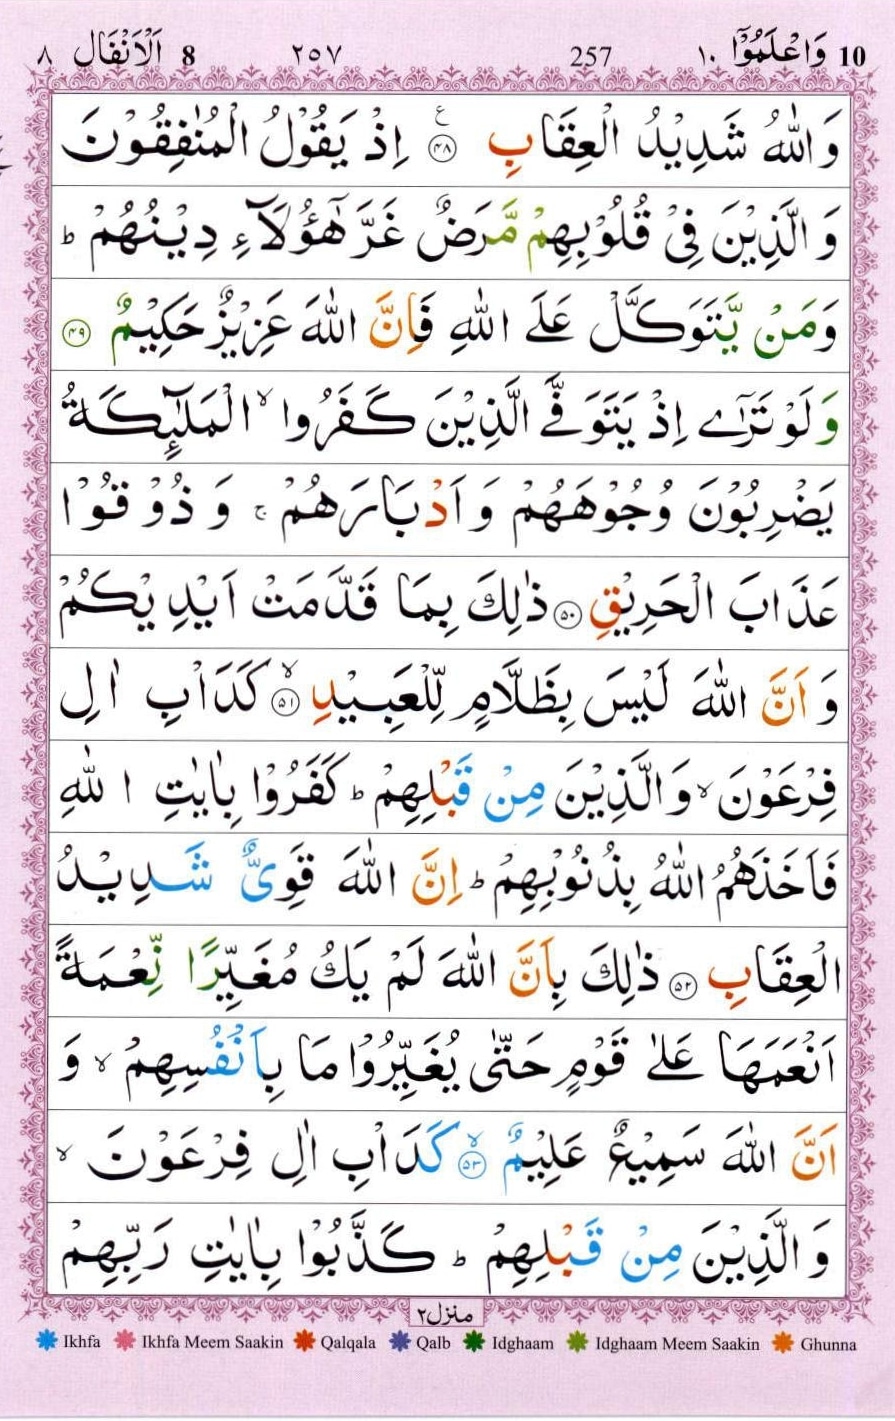 ٨ اَلْاَنْفَال 8 ٢٥٧ 257 وَاعْلَمُوْٓا ١٠ 10
وَاللّٰهُ شَدِيْدُ الْعِقَابِ ﴿٤٨﴾ ع اِذْ يَقُوْلُ الْمُنٰفِقُوْنَ
وَالَّذِيْنَ فِيْ قُلُوْبِهِمْ مَّرَضٌ غَرَّ هٰٓؤُلَآءِ دِيْنُهُمْ ؕ
وَمَنْ يَّتَوَكَّلْ عَلَى اللّٰهِ فَاِنَّ اللّٰهَ عَزِيْزٌ حَكِيْمٌ ﴿٤٩﴾
وَلَوْ تَرٰٓى اِذْ يَتَوَفَّى الَّذِيْنَ كَفَرُوا ۙ الْمَلٰٓئِكَةُ
يَضْرِبُوْنَ وُجُوْهَهُمْ وَاَدْبَارَهُمْ ۚ وَذُوْقُوْا
عَذَابَ الْحَرِيْقِ ﴿٥٠﴾ ذٰلِكَ بِمَا قَدَّمَتْ اَيْدِيْكُمْ
وَاَنَّ اللّٰهَ لَيْسَ بِظَلَّامٍ لِّلْعَبِيْدِ ۙ﴿٥١﴾ كَدَاْبِ اٰلِ
فِرْعَوْنَ ۙ وَالَّذِيْنَ مِنْ قَبْلِهِمْ ؕ كَفَرُوْا بِاٰيٰتِ اللّٰهِ
فَاَخَذَهُمُ اللّٰهُ بِذُنُوْبِهِمْ ؕ اِنَّ اللّٰهَ قَوِيٌّ شَدِيْدُ
الْعِقَابِ ﴿٥٢﴾ ذٰلِكَ بِاَنَّ اللّٰهَ لَمْ يَكُ مُغَيِّرًا نِّعْمَةً
اَنْعَمَهَا عَلٰى قَوْمٍ حَتّٰى يُغَيِّرُوْا مَا بِاَنْفُسِهِمْ ۙ وَ
اَنَّ اللّٰهَ سَمِيْعٌ عَلِيْمٌ ۙ﴿٥٣﴾ كَدَاْبِ اٰلِ فِرْعَوْنَ ۙ
وَالَّذِيْنَ مِنْ قَبْلِهِمْ ؕ كَذَّبُوْا بِاٰيٰتِ رَبِّهِمْ
منزل٢
Ikhfa Ikhfa Meem Saakin Qalqala Qalb Idghaam Idghaam Meem Saakin Ghunna